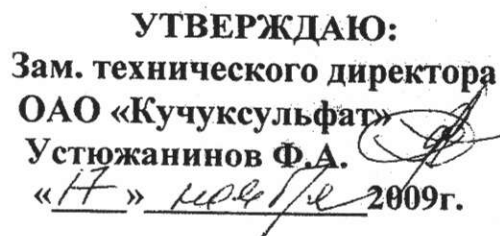 УТВЕРЖДАЮ:
Зам. технического директора
ОАО «Кучуксульфат»
Устюжанинов Ф.А.
«17» ноября 2009г.